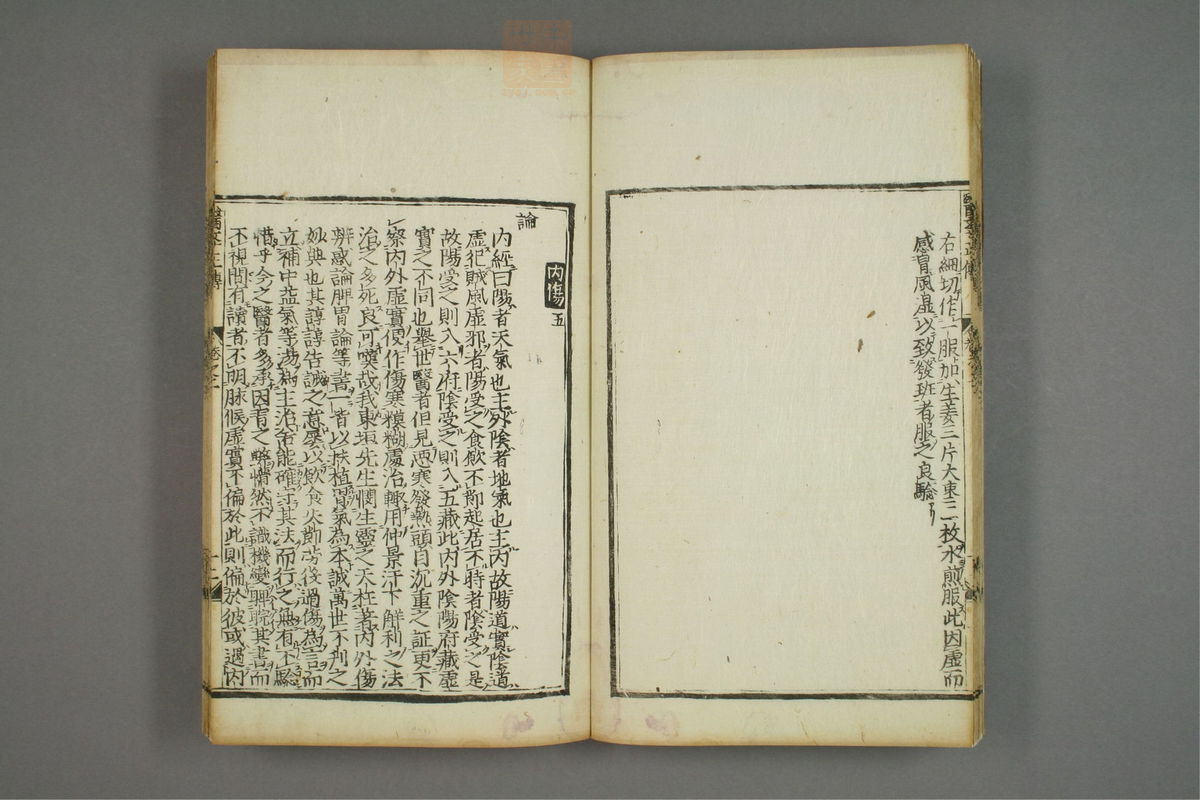 右細切作一服加生姜三片大棗二枚水煎服此因虛而
感冒風濕以致發斑者服之良驗
醫學正傳
內傷 五
論
內經曰陽者天氣也主外陰者地氣也主內故陽道實陰道
虛犯賊風虛邪者陽受之食飲不節起居不時者陰受之是
故陽受之則入六府陰受之則入五藏此內外陰陽府藏虛
實之不同也舉世醫者但見惡寒發熱頭目沉重之証更不
察內外虛實便作傷寒糢糊處治輙用仲景汗下解利之法
治之多死良可嘆哉我東垣先生憫生靈之夭枉著內外傷
辨惑論脾胃論等書一皆以扶植胃氣為本誠萬世不刋之
妙典也其諄諄告誡之意屡以飲食失節勞役過傷為言而
立補中益氣等湯為主治舍能確守其法而行之無有不驗
惜乎今之醫者多承因者之略懵然不識機變聊睨其書而
不視間有讀者不明脉候虛實不偏於此則偏於彼或遇內
醫學正傳